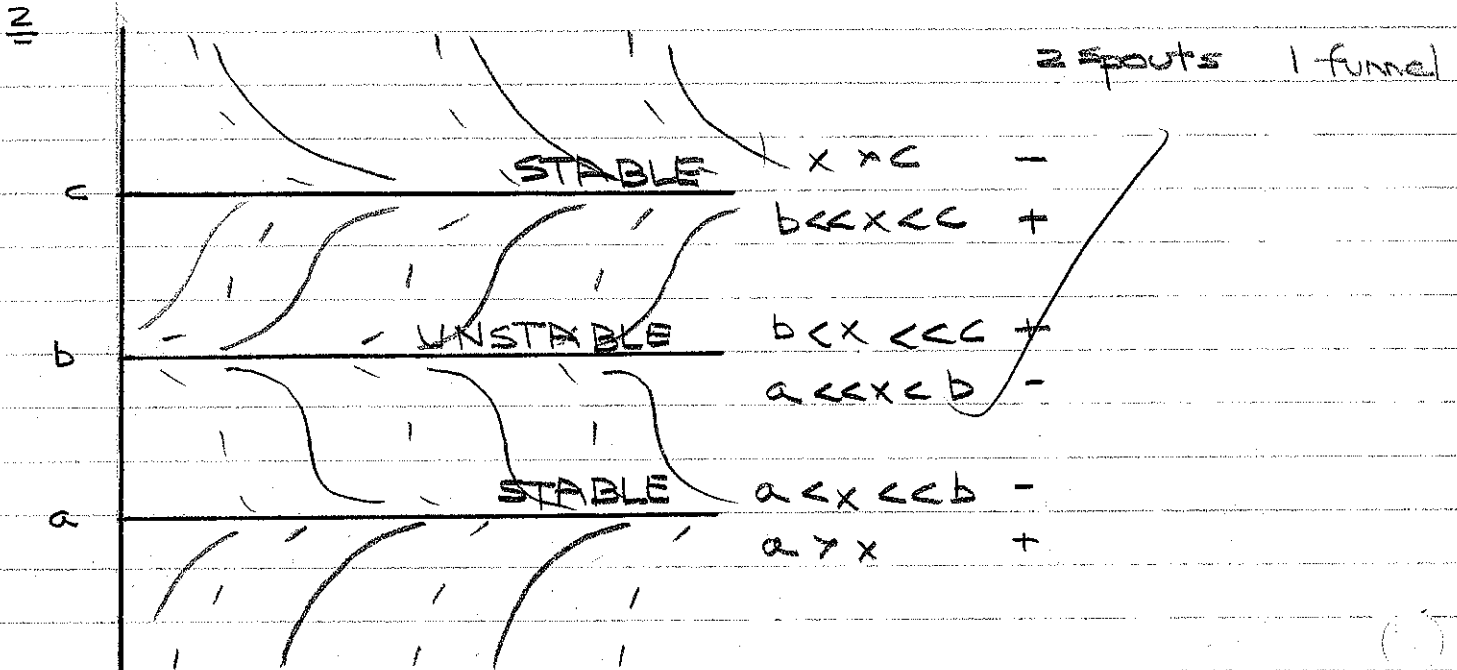 2
2 spouts 1 funnel
STABLE x > c -
c
b<<x<<c +
UNSTABLE b<x<<c +
b
a<<x<b -
STABLE a<x<<b -
a
a > x +